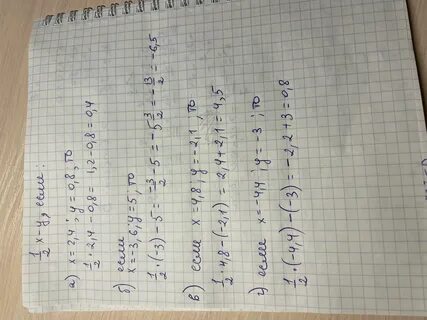 1/2 x - y, если:
а) x = 2,4; y = 0,8, то
1/2 · 2,4 - 0,8 = 1,2 - 0,8 = 0,4
б) если
x = -3,6; y = 5, то
1/2 · (-3) - 5 = -3/2 - 5 = -5 3/2 = -13/2 = -6,5
в) если x = 4,8; y = -2,1, то
1/2 · 4,8 - (-2,1) = 2,4 + 2,1 = 4,5
г) если x = -4,4; y = -3; то
1/2 · (-4,4) - (-3) = -2,2 + 3 = 0,8